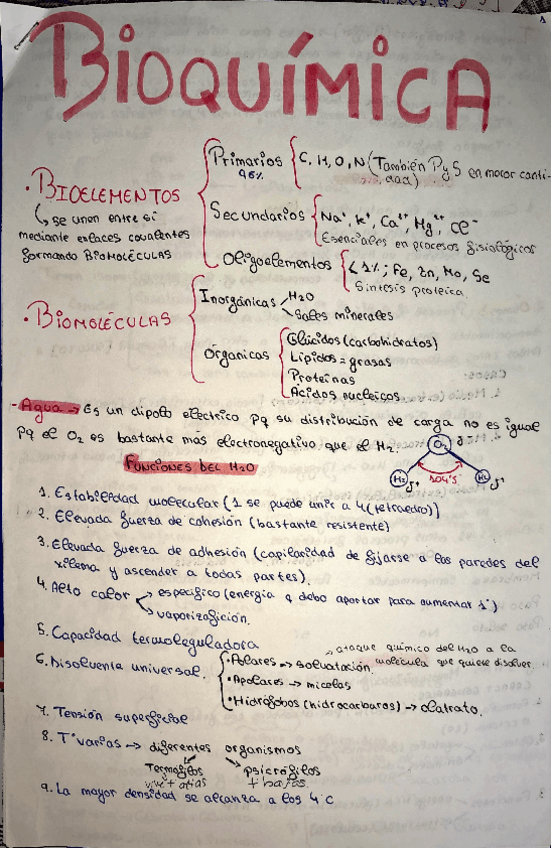 BIOQUÍMICA
Primarios 96% C, H, O, N (También P y S en menor cantidad)
· BIOELEMENTOS
↳ se unen entre sí
mediante enlaces covalentes
formando BIOMOLÉCULAS
Secundarios Na⁺, K⁺, Ca⁺⁺, Mg⁺⁺, Cl⁻
Esenciales en procesos fisiológicos
Oligoelementos < 1%; Fe, Zn, Mo, Se
Síntesis proteica
· BIOMOLÉCULAS
Inorgánicas H₂O
Sales minerales
Orgánicas Glúcidos (carbohidratos)
Lípidos = grasas
Proteínas
Ácidos nucleicos
- Agua → Es un dipolo eléctrico pq su distribución de carga no es igual
pq el O₂ es bastante más electronegativo que el H₂.
O₂
H₂ δ⁺ 104'5 H₂ δ⁺
FUNCIONES DEL H₂O
1. Estabilidad molecular (1 se puede unir a 4 (tetraedro))
2. Elevada fuerza de cohesión (bastante resistente)
3. Elevada fuerza de adhesión (capilaridad de fijarse a las paredes del
xilema y ascender a todas partes).
4. Alto calor específico (energía q debo aportar para aumentar 1°)
vaporización.
5. Capacidad termoreguladora
ataque químico del H₂O a la
molécula que quiere disolver.
6. Disolvente universal. • Polares → solvatación
• Apolares → micelas
• Hidrófobos (hidrocarburos) → clatrato.
7. Tensión superficial
8. T° varias → diferentes organismos
Termófilos psicrófilos
+ altas + bajas
9. La mayor densidad se alcanza a los 4°C